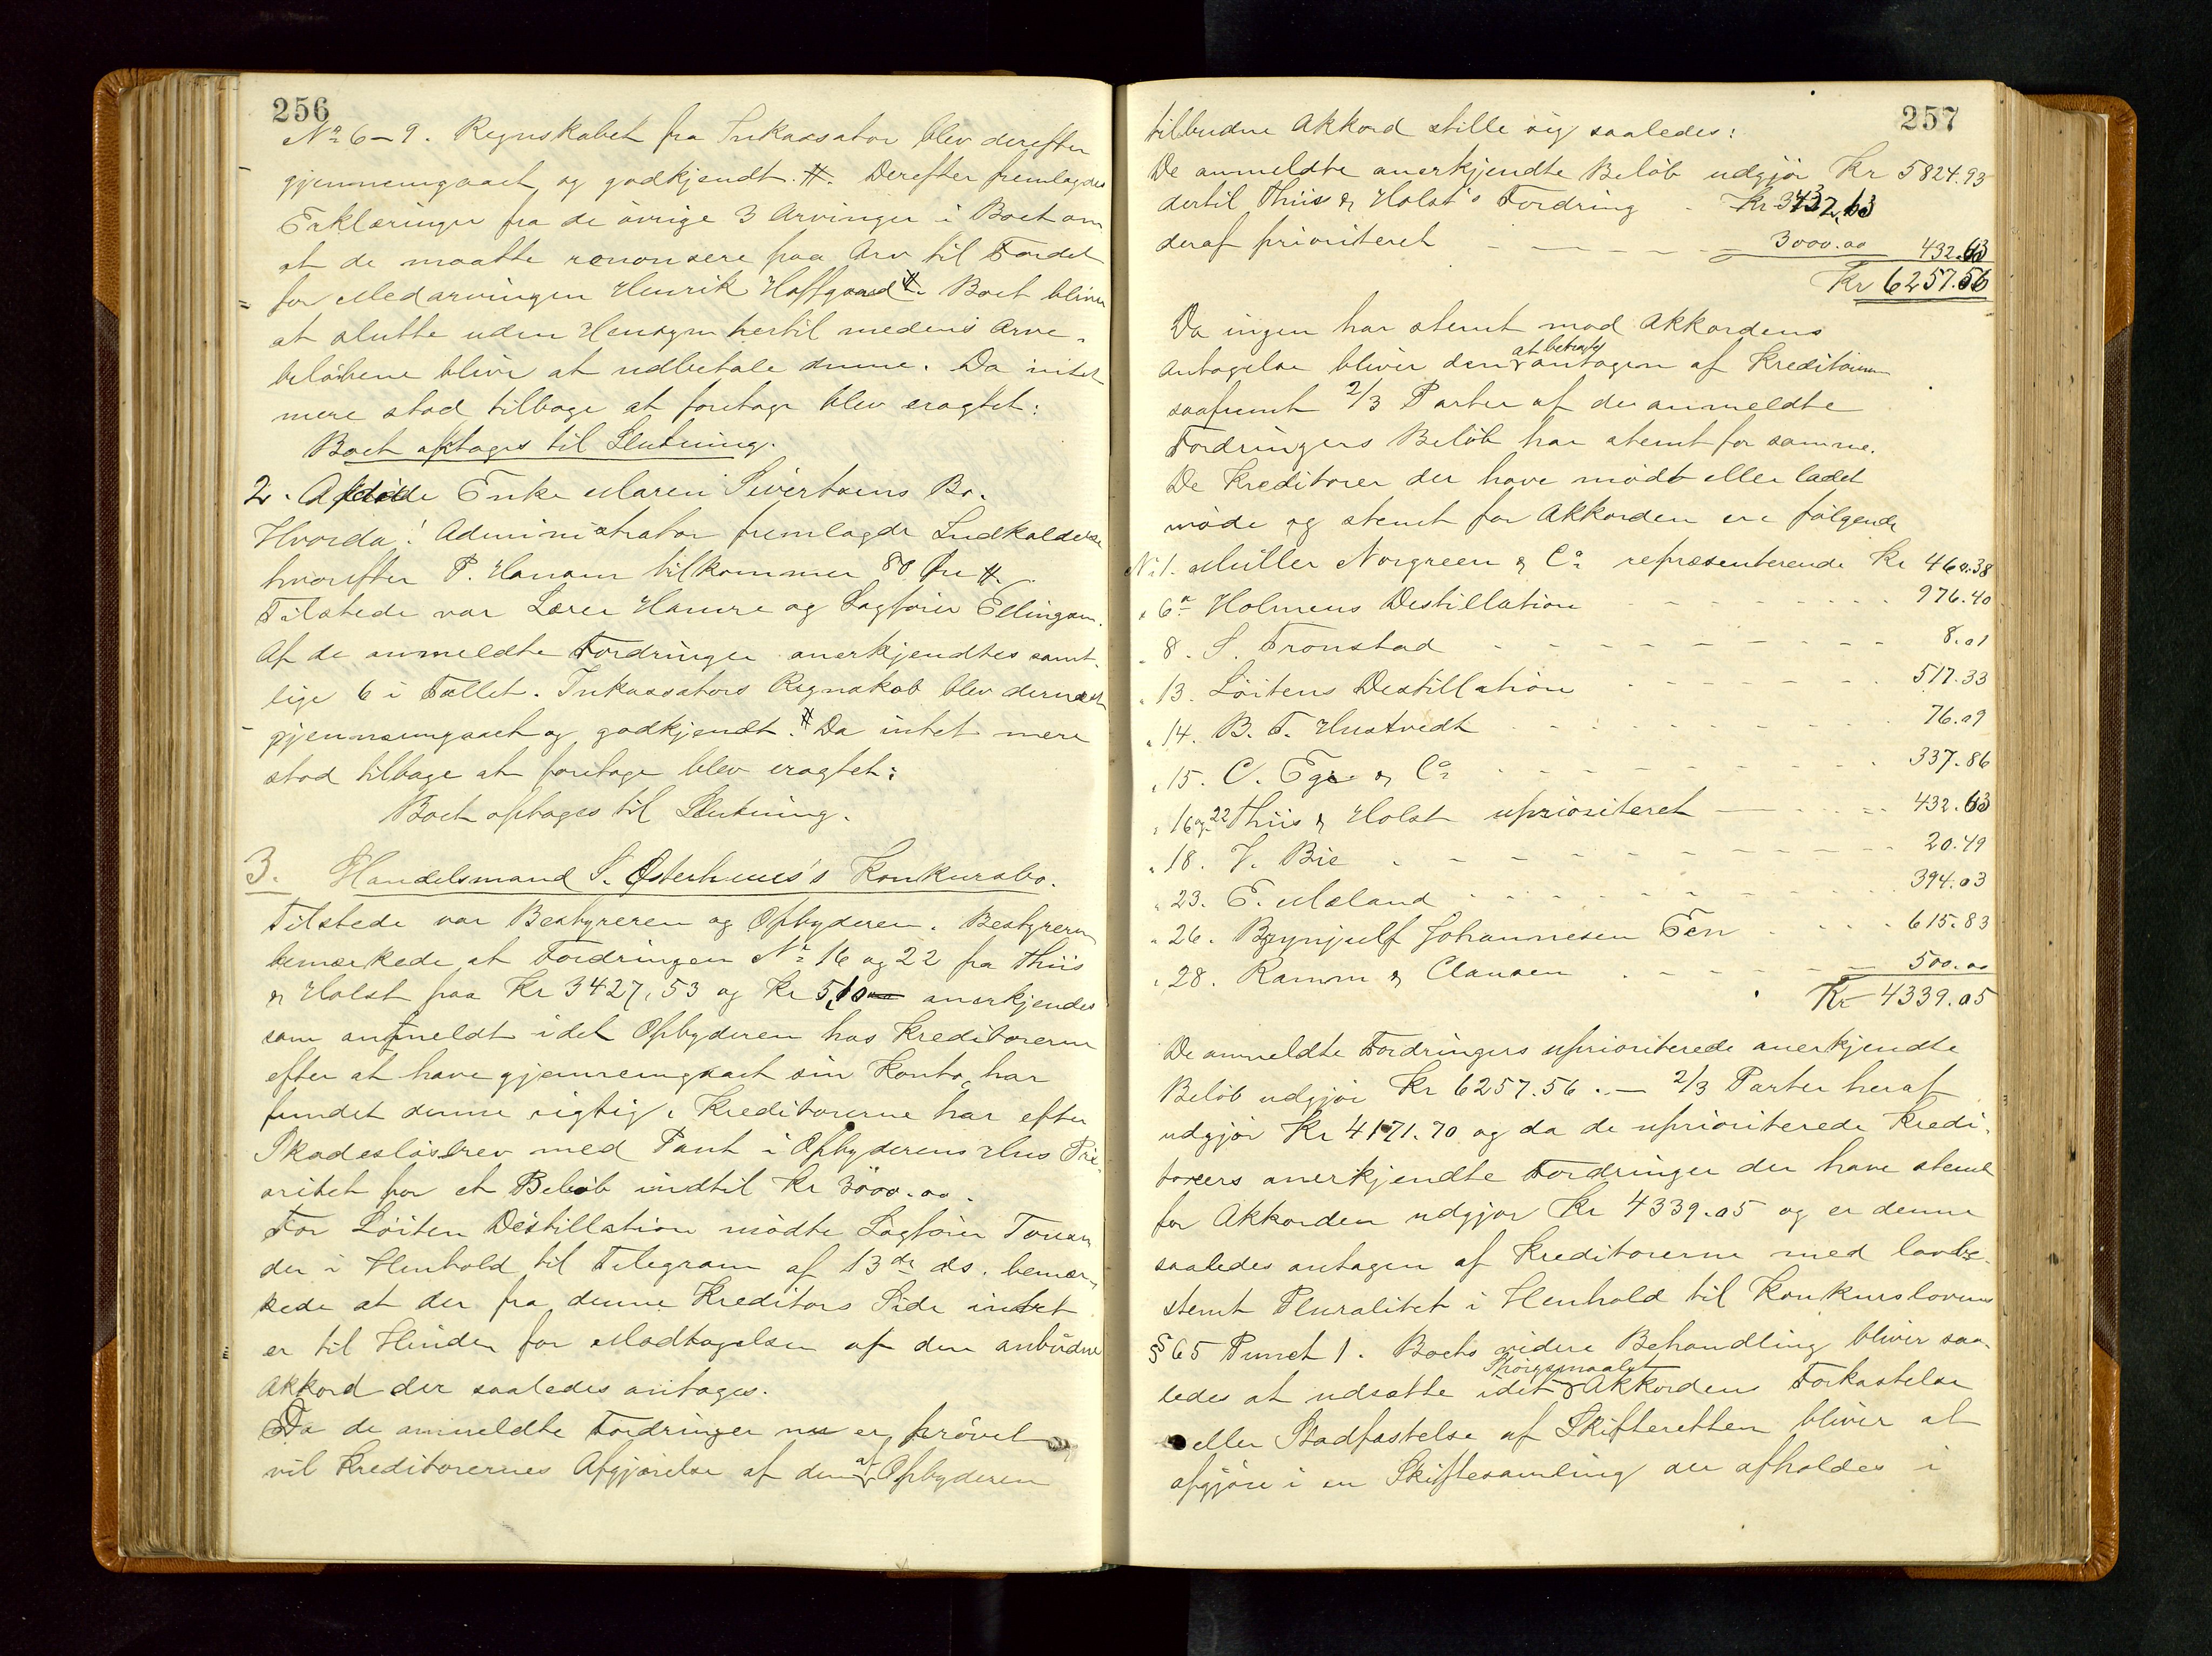 256
No 6-9. Regnskabet fra Inkassator blev derefter
gjennemgaaet og godkjendt. #. Derefter fremlagdes
Erklæringer fra de øvrige 3 Arvinger i Boet om
at de maatte renonsere paa Arv til Fordel
for Medarvingen Henrik Hoffgaard #. Boet bliver
at slutte uden Hensyn hertil medens Arve-
beløbene blive at udbetale denne. Da intet
mere stod tilbage at foretage blev eragtet:
Boet optages til Slutning.
2. Afdøde Enke Maren Sivertsens Bo.
Hvorda: Administrator fremlagde Indkaldelse
hvorefter P. Hansen tilkommer 80 Øre #.
Tilstede var Lærer Hamre og Sagfører Ellingsen.
Af de anmeldte Fordringer anerkjendtes samt-
lige 6 i Tallet. Inkassators Regnskab blev dernæst
gjennemgaaet og godkjendt. # Da intet mere
stod tilbage at foretage blev eragtet:
Boet optages til Slutning.
3. Handelsmand S. Østerhuus's Konkursbo.
Tilstede var Bestyreren og Opbyderen. Bestyreren
bemærkede at Fordringen No 16 og 22 fra Thiis
& Holst paa Kr 3427,53 og Kr 5,10 anerkjendes
som anmeldt idet Opbyderen hos Kreditorerne
efter at have gjennemgaaet sin Konto har
fundet denne rigtig. Kreditorerne har efter
Skadesløsbrev med Pant i Opbyderens Hus Pri-
oritet for et Beløb indtil Kr 3000.00.
For Løiten Destillation mødte Sagfører Tønen
der i Henhold til Telegram af 13de ds. bemær-
kede at der fra denne Kreditors Side intet
er til Hinder for Modtagelsen af den anbudne
Akkord der saaledes antages.
Da de anmeldte Fordringer nu er prøvet
vil Kreditorernes Afgjørelse af den af Opbyderen
257
tilbudne Akkord stille sig saaledes:
De anmeldte anerkjendte Beløb udgjør Kr 5824.93
dertil Thiis & Holst's Fordring - Kr 3432,63
deraf prioriteret - - - - - 3000.00 432.63
Kr 6257.56
Da ingen har stemt mod Akkordens
Antagelse bliver den at betragte antagen af Kreditorerne
saafremt 2/3 Parter af de anmeldte
Fordringers Beløb har stemt for samme.
De Kreditorer der have mødt eller ladet
møde og stemt for Akkorden ere følgende
No 1. Müller Norgreen & Co repræsenterende Kr 460.38
" 6a Holmens Destillation - - - 976.40
" 8. S. Tronstad - - - 8.01
" 13. Løitens Destillation - - - 517.33
" 14. B. T. Hustvedt - - - 76.09
" 15. C. Egr & Co - - - 337.86
" 16 og 22 Thiis & Holst uprioriteret - - - 432.63
" 18. V. Bie - - - 20.49
" 23. E. Mæland - - - 394.03
" 26. Brynjulf Johannesen Een - - - 615.83
" 28. Ramm & Clausen - - - 500.00
Kr 4339.05
De anmeldte Fordringers uprioriterede anerkjendte
Beløb udgjør Kr 6257.56. — 2/3 Parter heraf
udgjør Kr 4171.70 og da de uprioriterede Kredi-
torers anerkjendte Fordringer der have stemt
for Akkorden udgjør Kr 4339.05 og er denne
saaledes antagen af Kreditorerne med lovbe-
stemt Pluralitet i Henhold til Konkurslovens
§ 65 Punct 1. Boets videre Behandling bliver saa-
ledes at udsætte idet Spørgsmaalet Akkordens Forkastelse
eller Stadfæstelse af Skifteretten bliver at
afgjøre i en Skiftesamling der afholdes i